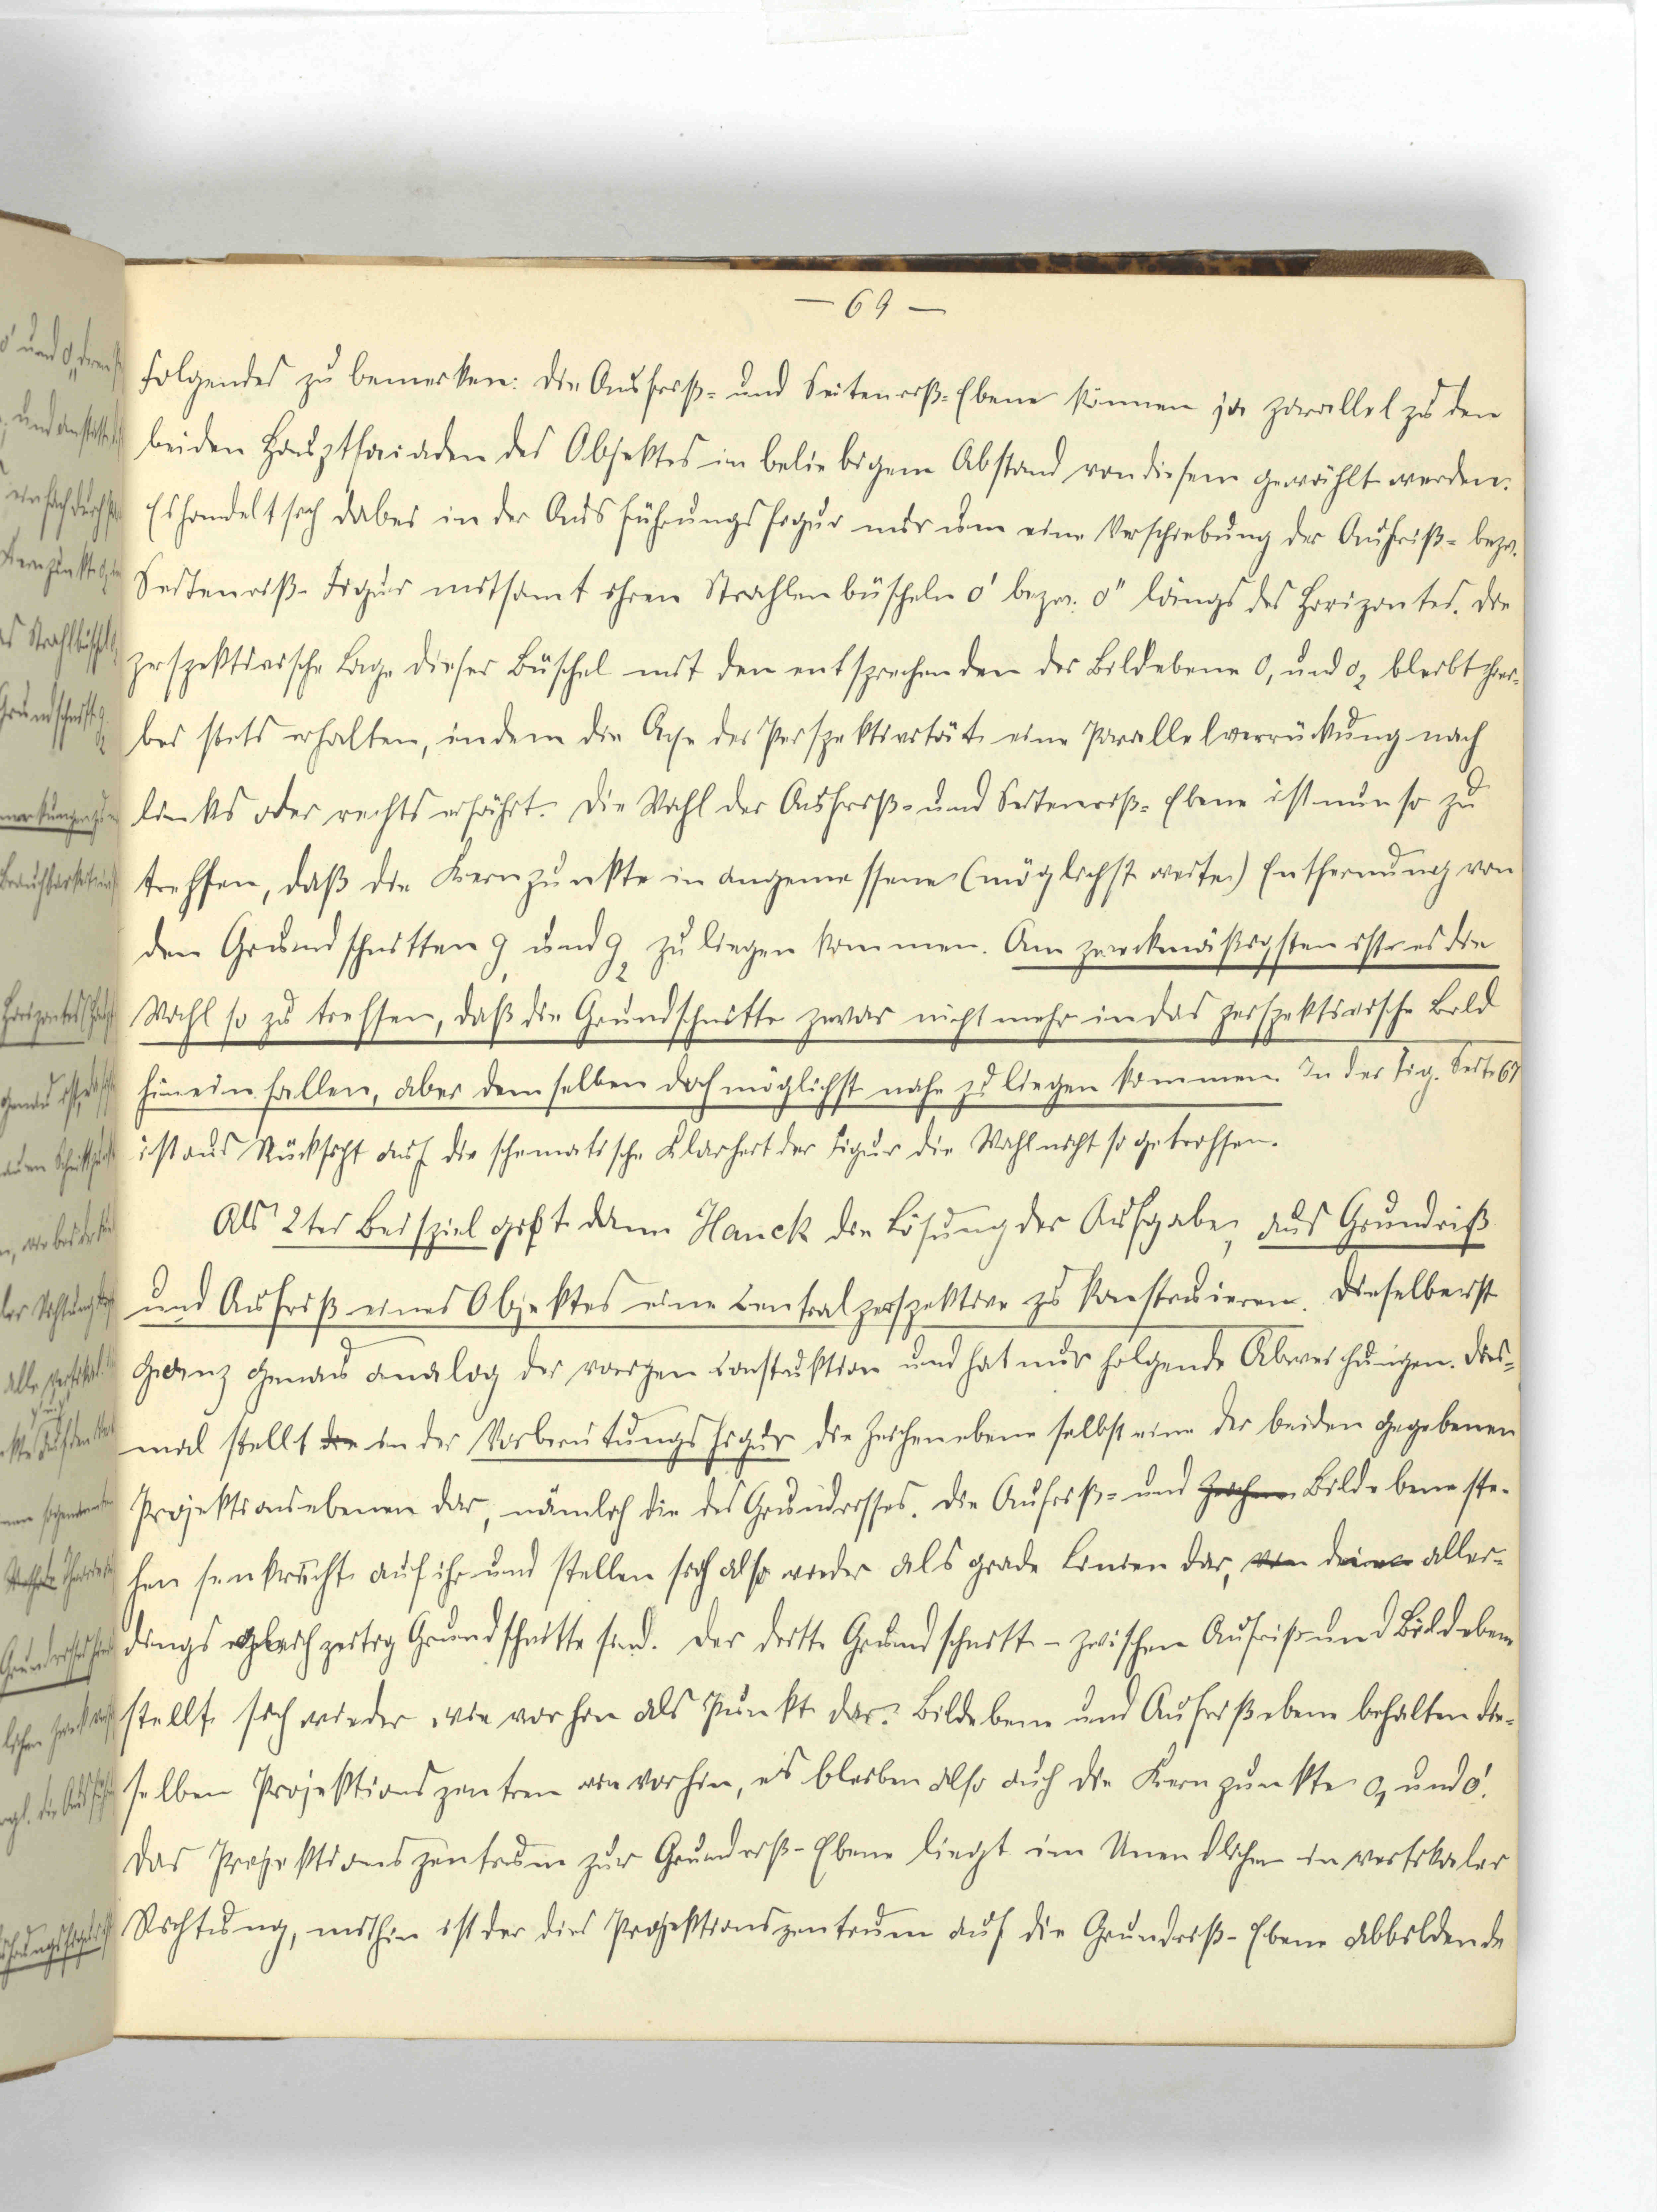 — 69 —
Folgendes zu bemerken: die Aufriß- und Seitenriß-Ebene können ja parallel zu den
beiden Hauptfaiaden des Objektes in beliebigem Abstand von diesem gewählt werden.
Es handelt sich dabei in der Ausführungsfigur nur um eine Verschiebung der Aufriß- bezw.
Seitenriß-Figur mitsamt ihren Strahlenbüscheln o' bezw. o" längs des Horizontes. Die
perspektivische Lage dieser Büschel mit den entsprechenden der Bildebene o₁ und o₂ bleibt hier-
bei stets erhalten, indem die Axe der Perspektivität eine Parallelverrückung nach
links oder rechts erfährt. Die Wahl der Aufriß- und Seitenriß-Ebene ist nun so zu
treffen, daß die Kernpunkte in angemessener (möglichst weiter) Entfernung von
den Grundschnitten g₁ und g₂ zu liegen kommen. Am zweckmäßigsten ist es die
Wahl so zu treffen, daß die Grundschnitte zwar nicht mehr in das perspektivische Bild
hineinfallen, aber demselben doch möglichst nahe zu liegen kommen. In der Fig. Seite 67
ist aus Rücksicht auf die schematische Klarheit der Figur die Wahl nicht so getroffen.
Als 2tes Beispiel gibt dann Hauck die Lösung der Aufgabe, aus Grundriß
und Aufriß eines Objektes eine Centralperspektive zu konstruieren. Dieselbe ist
ganz genau analog der vorigen Constuktion und hat nur folgende Abweichungen. Dies-
mal stellt die in der Vorbereitungsfigur die Zeichenebene selbst eine der beiden gegebenen
Projektionsebenen dar, nämlich die des Grundrisses. Die Aufriß- und Zeichen Bildebene ste-
hen senkrecht auf ihr und stellen sich also wieder als grade Linien dar, die aller-
dings gleichzeitig Grundschnitte sind. Der dritte Grundschnitt - zwischen Aufriß und Bildebene
stellt sich wieder wie vorhin als Punkt dar. Bildebene und Aufrißebene behalten die-
selben Projektionszentren wie vorhin, es bleiben also auch die Kernpunkte o₁ und o'.
Das Projektionszentrum zur Grundriß-Ebene liegt im Unendlichen in vertikaler
Richtung, mithin ist der dies Projektionszentrum auf die Grundriß-Ebene abbildende